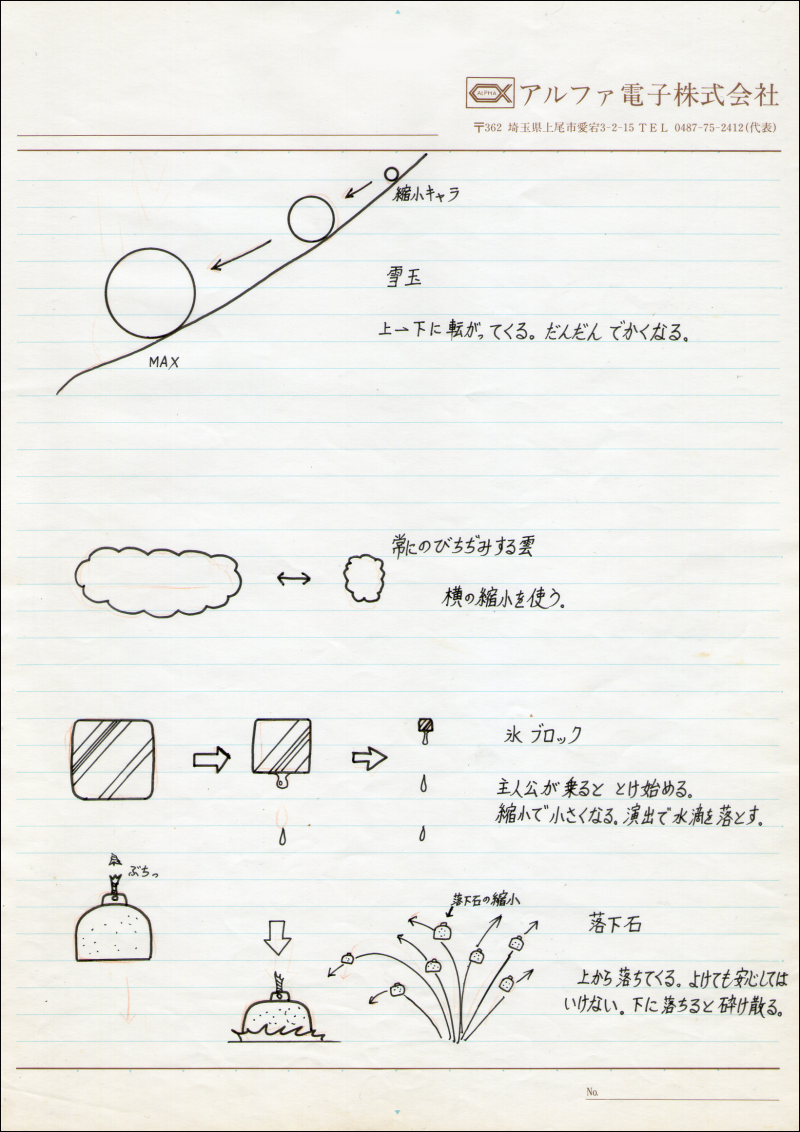 ALPHA
アルファ電子株式会社
〒362 埼玉県上尾市愛宕3-2-15 TEL 0487-75-2412(代表)
縮小キャラ
雪玉
上→下に転がってくる。だんだん でかくなる。
MAX
常にのびちぢみする雲
横の縮小を使う。
氷 ブロック
主人公が乗ると とけ始める。
縮小で小さくなる。演出で水滴を落とす。
ぶちっ
落下石の縮小
落下石
上から落ちてくる。よけても安心しては
いけない。下に落ちると砕け散る。
No.